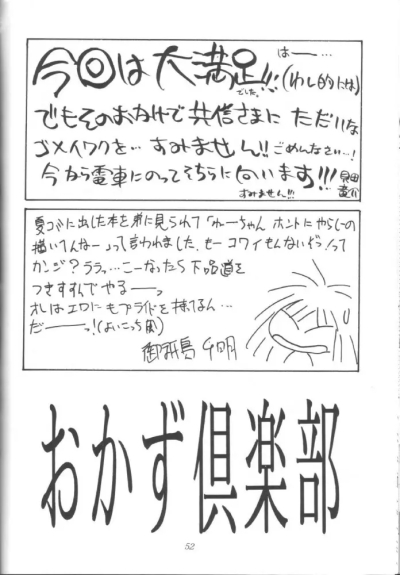 はー…
今回は大満足!!!(わし的には)
でした。
でもそのおかげで共信さまに ただいな
ゴメイワクを… すみません!! ごめんなさい…!
今から電車にのってそちらに向います!!!
すみません!!!
夏コミに出した本を弟に見られて「みーちゃん ホントにやらしーの
描いてんなー」って言われました。もー コワイもんないぞっ!って
カンジ?ララッ…こーなったら下品道を
つきすすんでやるーっ
オレはエロにもプライドを持てるん…
だーーっ!(よいこっち風)
おかず倶楽部
52